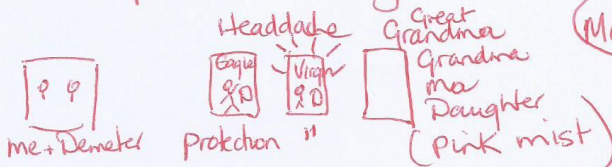 Headdache
Great
Grandma
Grandma
ma
Daughter
(pink mist)
Eagle
Virgin
me + Demeter
protection
"